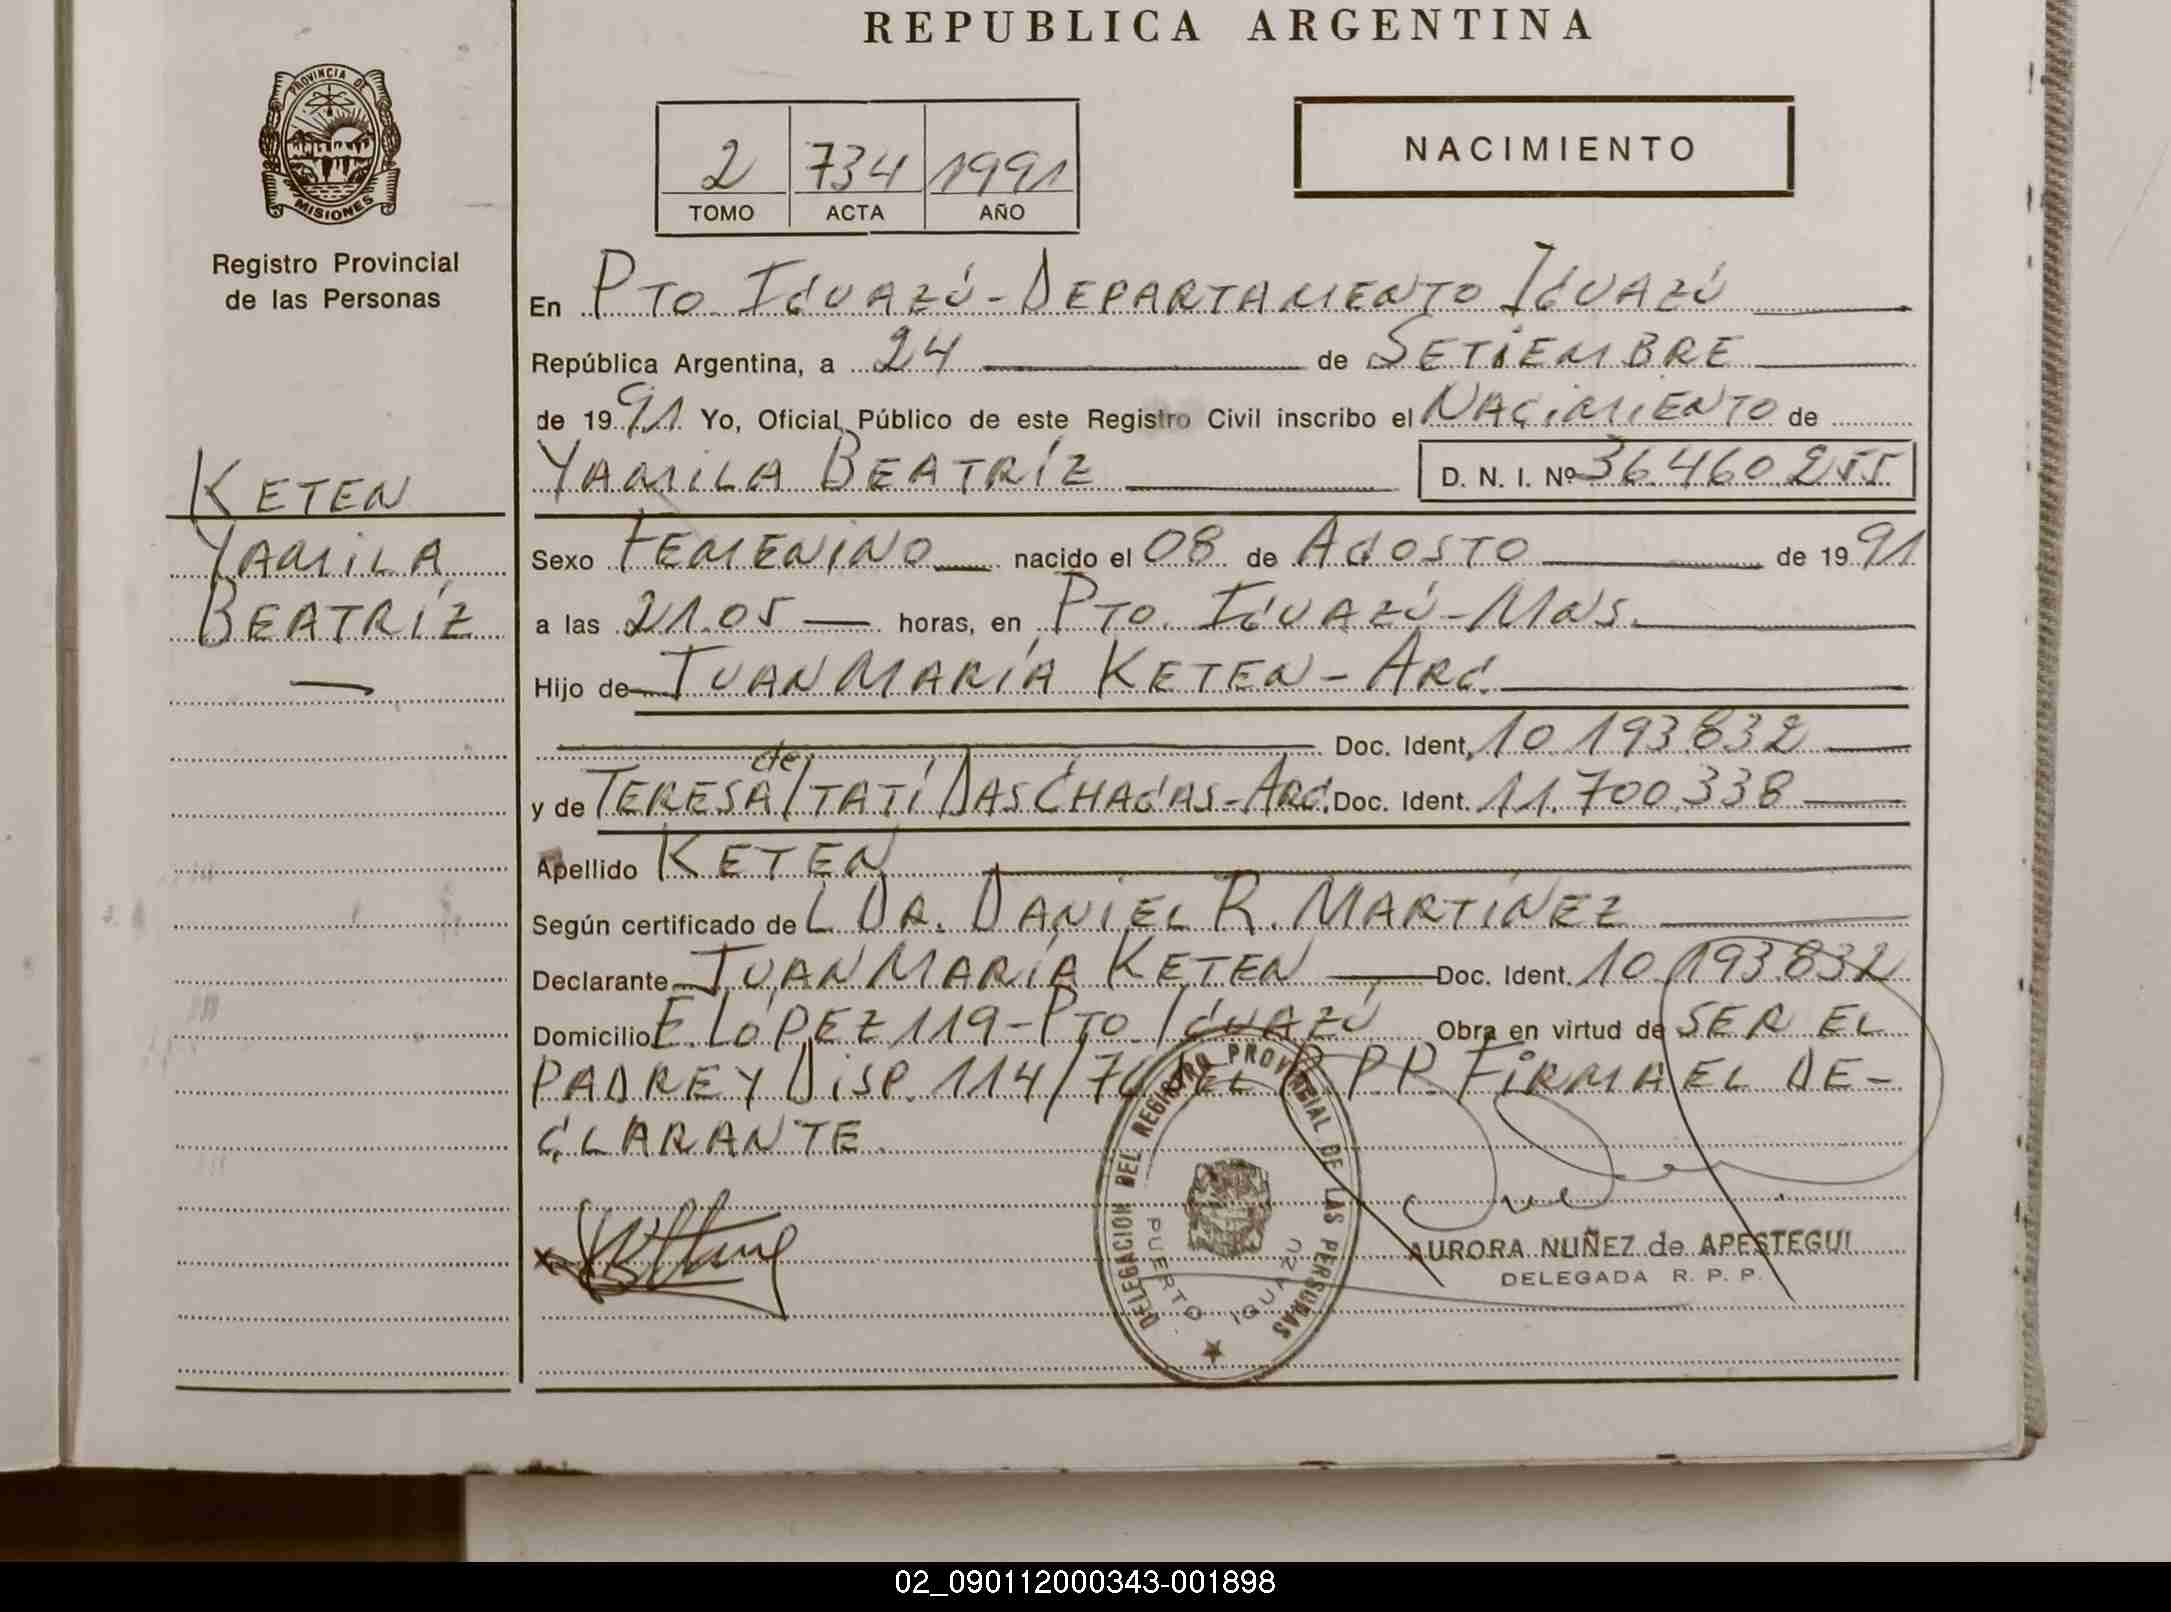 REPUBLICA ARGENTINA
PROVINCIA DE
MISIONES
Registro Provincial
de las Personas
2 734 1991
TOMO ACTA AÑO
NACIMIENTO
En PTO. IGUAZÚ - DEPARTAMENTO IGUAZÚ
República Argentina, a 24 de SETIEMBRE
de 1991 Yo, Oficial Público de este Registro Civil inscribo el NACIMIENTO de
YAMILA BEATRÍZ D. N. I. Nº 36460255
KETEN
YAMILA
BEATRÍZ
Sexo FEMENINO nacido el 08 de AGOSTO de 1991
a las 21.05 horas, en PTO. IGUAZÚ - MNS.
Hijo de JUAN MARÍA KETEN - ARG.
Doc. Ident. 10.193.832
y de TERESA de ITATÍ DAS CHAGAS - ARG. Doc. Ident. 11.700.338
Apellido KETEN
Según certificado de L DR. DANIEL R. MARTÍNEZ
Declarante JUAN MARÍA KETEN Doc. Ident. 10.193.832
Domicilio E. LÓPEZ 119 - PTO. IGUAZÚ Obra en virtud de SER EL
PADRE Y DISP. 114/ DEL R.P.P. FIRMA EL DE-
CLARANTE.
DELEGACION DEL REGISTRO PROVINCIAL DE LAS PERSONAS
PUERTO IGUAZU
AURORA NUÑEZ de APESTEGUI
DELEGADA R. P. P.
02_090112000343-001898